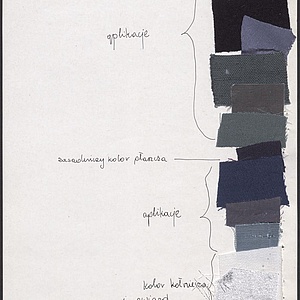 aplikacje
zasadniczy kolor płaszcza
aplikacje
kolor kołnierza